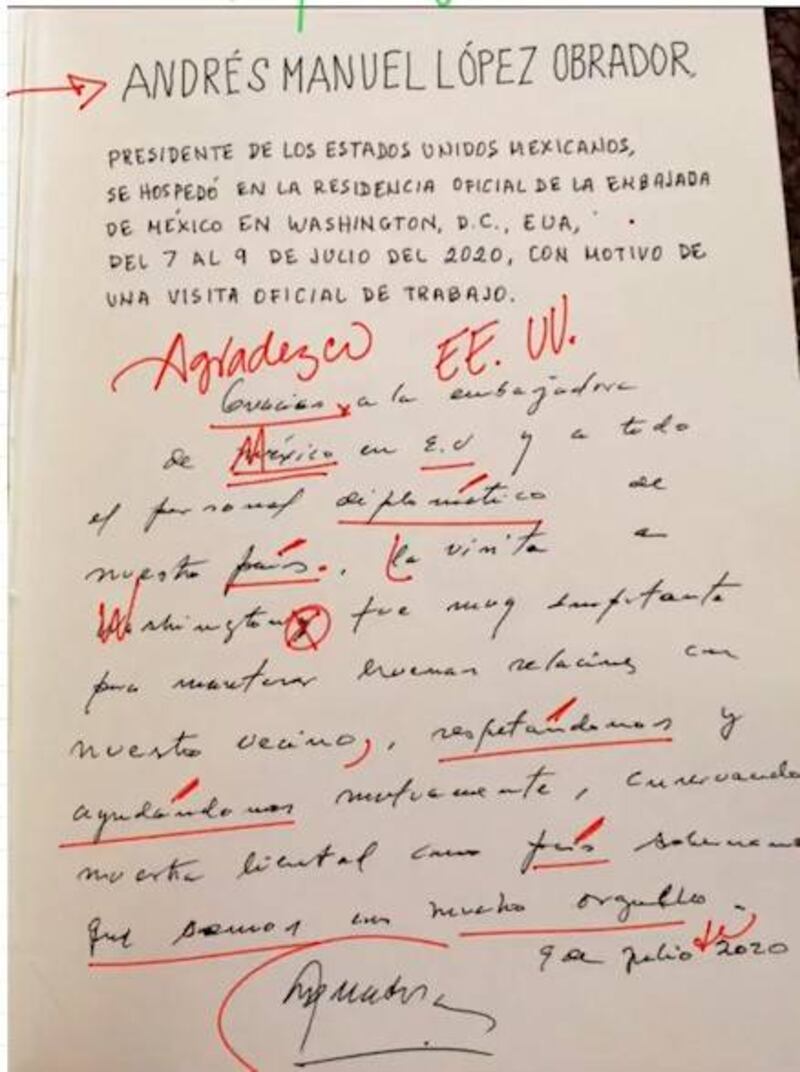 ANDRÉS MANUEL LÓPEZ OBRADOR,
PRESIDENTE DE LOS ESTADOS UNIDOS MEXICANOS,
SE HOSPEDÓ EN LA RESIDENCIA OFICIAL DE LA EMBAJADA
DE MÉXICO EN WASHINGTON, D.C., EUA,
DEL 7 AL 9 DE JULIO DEL 2020, CON MOTIVO DE
UNA VISITA OFICIAL DE TRABAJO.
Agradezco EE. UU.
Gracias a la embajadora
de México en E.U y a todo
el personal diplomático de
nuestro país. La visita a
Washington fue muy importante
para mantener buenas relaciones con
nuestro vecino, respetándonos y
ayudándonos mutuamente, conservando
nuestra libertad como país soberano
que somos con mucho orgullo.
9 de julio de 2020